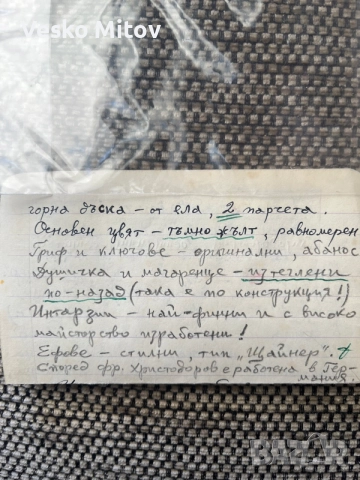 vesko Mitov
горна дъска – от ела, 2 парчета.
Основен цвят – тъмно жълт, равномерен
Гриф и ключове – оригинални, абанос
Душичка и магаренце – изтеглени
по-назад (така е по конструкция!)
Интарзии – най-фини и с високо
майсторство изработени!
Ефове – стилни, тип „Щайнер".
Според фр. Христодоров е работена в Гер-
мания
BAZAR